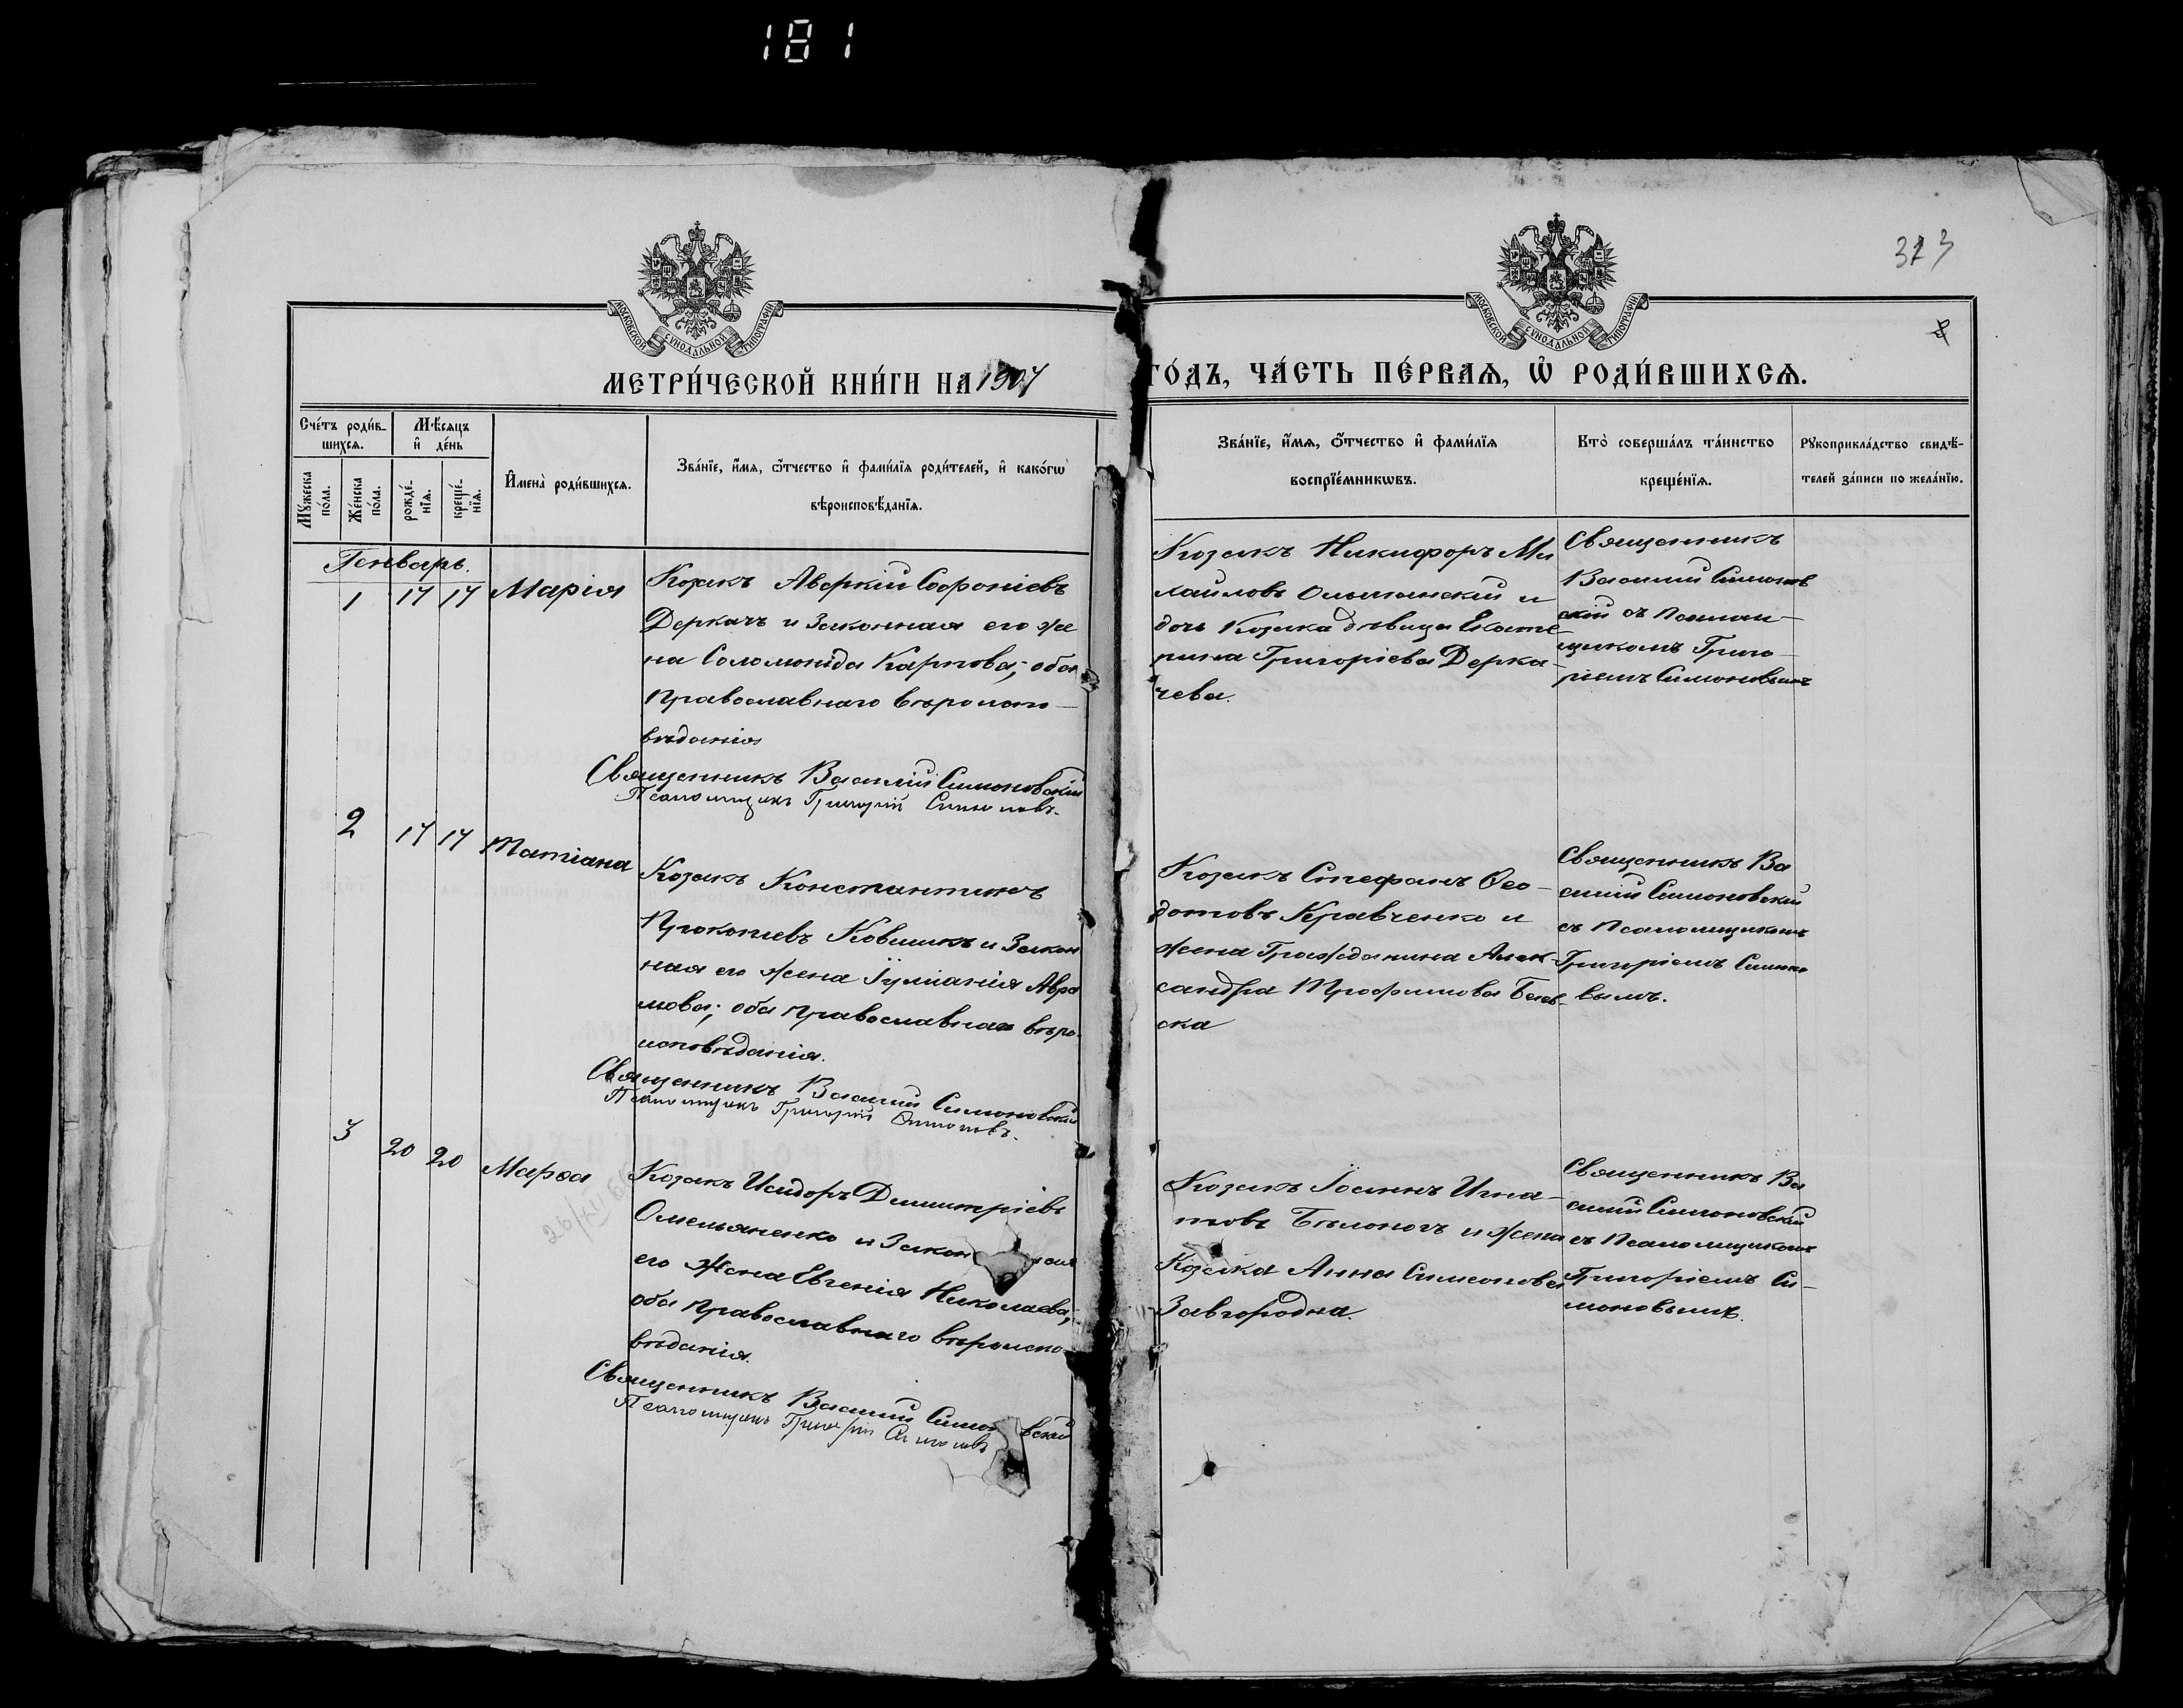 181
313
8
МОСКОВСКОЙ СѴНОДАЛЬНОЙ ТИПОГРАФІИ
МОСКОВСКОЙ СѴНОДАЛЬНОЙ ТИПОГРАФІИ
МЕТРИ́ЧЕСКОЙ КНИ́ГИ НА 1907 ГО́ДЪ, ЧА́СТЬ ПЕ́РВАѦ, Ѡ҆ РОДИ́ВШИХСѦ.
Сче́тъ роди́в-
шихсѧ.
Мѣ́сѧцъ
и҆ де́нь
Мꙋ́жеска
по́ла.
Же́нска
по́ла.
рожде́-
нїѧ.
креще́-
нїѧ.
И҆мена̀ роди́вшихсѧ.
Зва́нїе, и҆́мѧ, ѻ҆́тчество и҆ фами́лїѧ роди́телей, и҆ како́гѡ
вѣроисповѣ́данїѧ.
Зва́нїе, и҆́мѧ, ѻ҆́тчество и҆ фами́лїѧ
воспрїе́мникѡвъ.
Кто̀ соверша́лъ та́инство
креще́нїѧ.
Рꙋкоприкла́дство свидѣ́-
телей за́писи по жела́нїю.
Генварь.
1 17 17 Марія
Козакъ Аверкій Софроніевъ
Деркачъ и Законная его же
на Соломонида Карпова; оба
Православнаго вѣроиспо-
вѣданія
Священникъ Василій Симоновскій
Псаломщикъ Григорій Симоновъ.
Козакъ Никифоръ Ми
хайловъ Ольшанскій и
дочь Козака дѣвица Екате-
рина Григоріева Дерка-
чева.
Священникъ
Василій Симонов
скій съ Псалом-
щикомъ Григо-
ріемъ Симоновымъ
2 17 17 Татіана
Козакъ Константинъ
Прокопіевъ Ковшикъ и Закон
ная его жена Іуліанія Авра
мова; оба Православнаго вѣро-
исповѣданія.
Священникъ Василій Симоновскій
Псаломщикъ Григорій Симоновъ.
Козакъ Стефанъ Ѳео-
дотовъ Кравченко и
жена Гражданина Алек-
сандра Трофимова
ска
Священникъ Ва
силій Симоновскій
съ Псаломщикомъ
Григоріемъ Симоно
вымъ.
3 20 20 Марѳа
Козакъ Исидоръ Димитріевъ
Омельяненко и Закон ная
его жена Евгенія Николаева;
оба Православнаго вѣроиспо-
вѣданія.
Священникъ Василій Симо вскій
Псаломщикъ Григорій Симоновъ
Козакъ Іоаннъ Игна-
товъ Бѣлоногъ и жена
Козака Анна Симеонова
Завгородна.
Священникъ Ва
силій Симоновскій
съ Псаломщикомъ
Григоріемъ Си-
моновымъ.